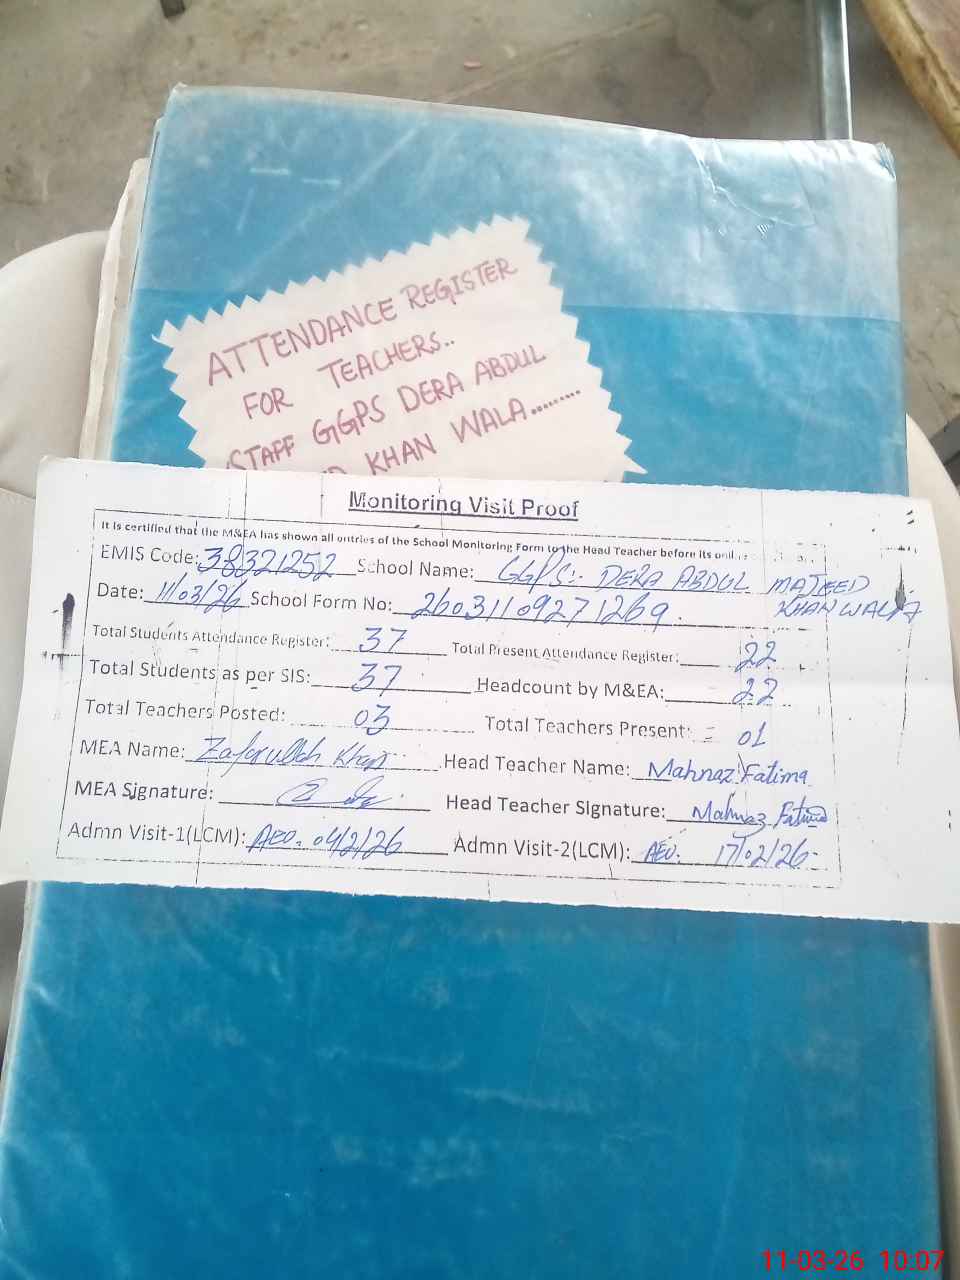 ATTENDANCE REGISTER
FOR TEACHERS..
STAFF GGPS DERA ABDUL
KHAN WALA.........
Monitoring Visit Proof
It is certified that the M&EA has shown all entries of the School Monitoring Form to the Head Teacher before its
EMIS Code: 38321252 School Name: GGPS:- DERA ABDUL MAJEED
KHANWALA
Date: 11/03/26 School Form No: 26031109271269.
Total Students Attendance Register: 37 Total Present Attendance Register: 22
Total Students as per SIS: 37 Headcount by M&EA: 22
Total Teachers Posted: 03 Total Teachers Present: 01
MEA Name: Zafarullah Khan Head Teacher Name: Mahnaz Fatima
MEA Signature: Head Teacher Signature: Mahnaz Fatima
Admn Visit-1(LCM): AEO. 04/2/26 Admn Visit-2(LCM): AEO. 17/02/26-
11-03-26 10:07